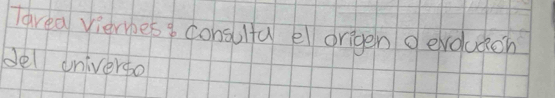 Tarea viernes: consulta el origen o evolución
del universo